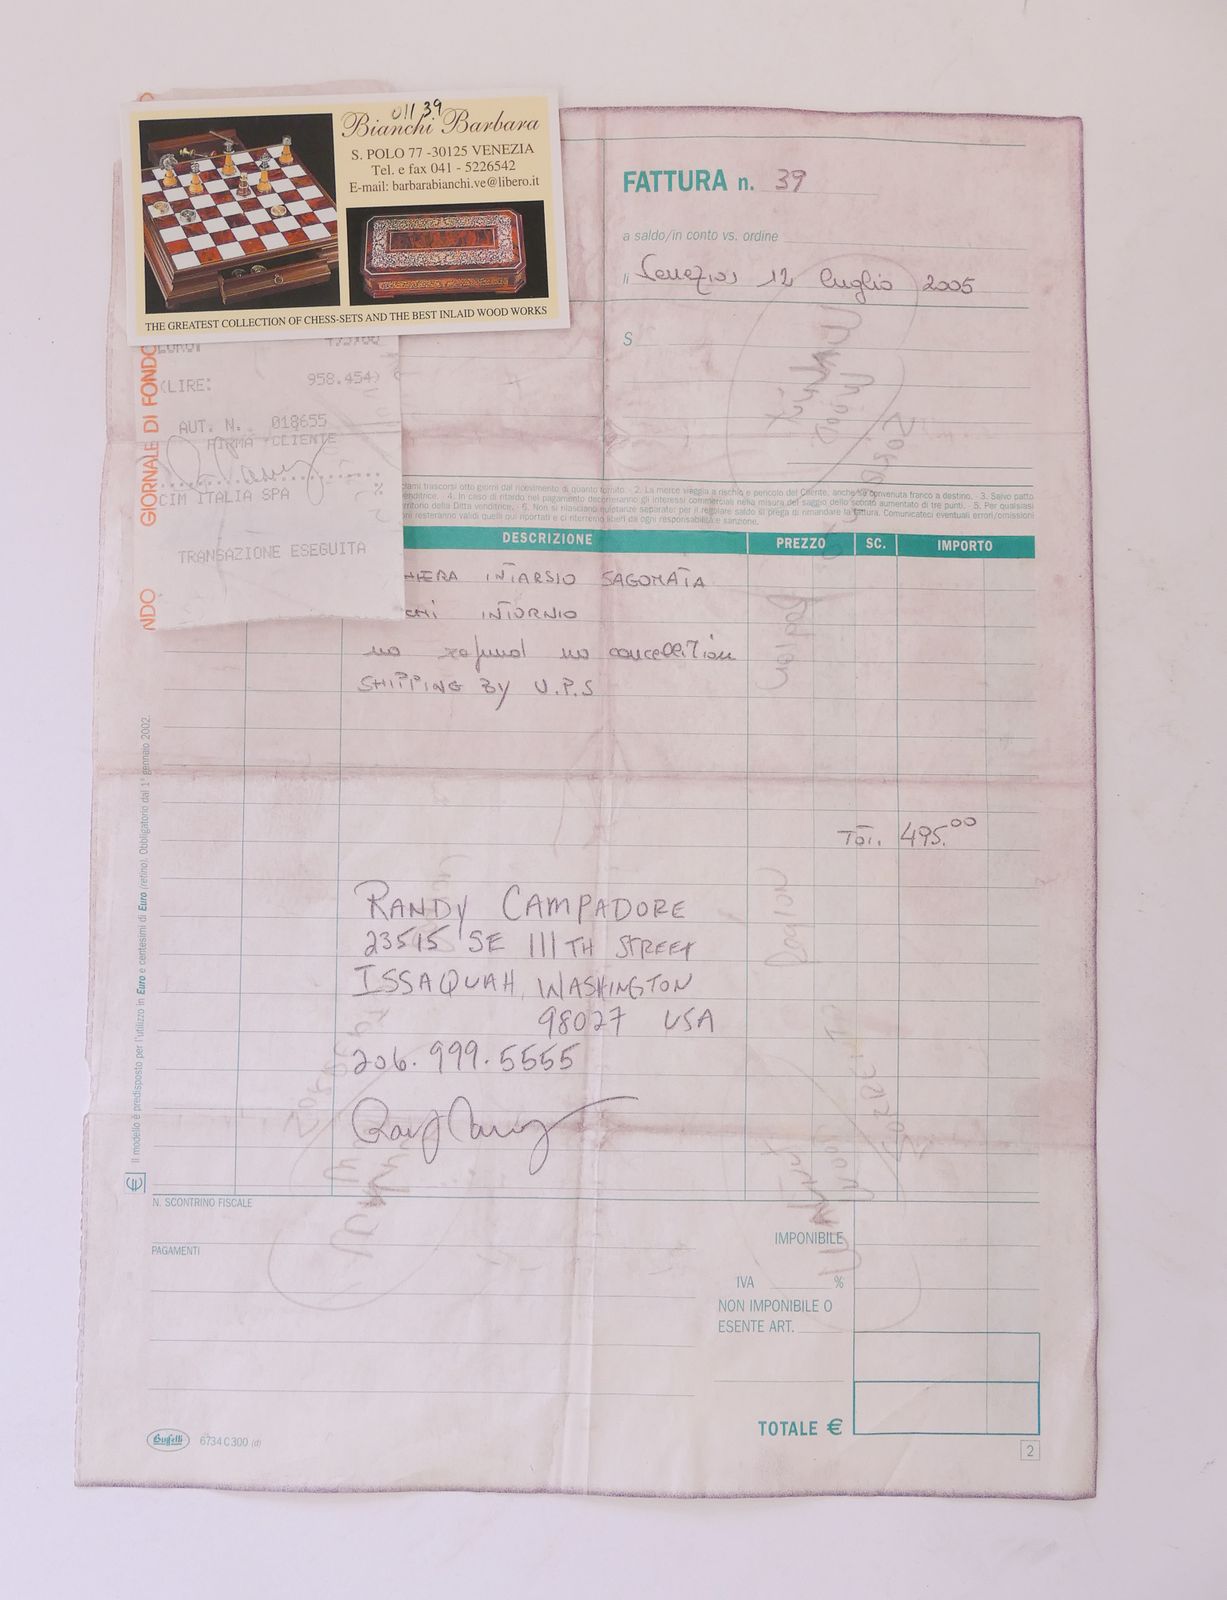 01139
Bianchi Barbara
S. POLO 77 -30125 VENEZIA
Tel. e fax 041 - 5226542
E-mail: barbarabianchi.ve@libero.it
THE GREATEST COLLECTION OF CHESS-SETS AND THE BEST INLAID WOOD WORKS
FATTURA n. 39
a saldo/in conto vs. ordine
li Venezia 12 luglio 2005
S
GIORNALE DI FONDO
NDO
(LIRE: 958.454)
AUT. N. 018655
FIRMA CLIENTE
CIM ITALIA SPA
TRANSAZIONE ESEGUITA
lami trascorsi otto giorni dal ricevimento di quanto fornito. - 2. La merce viaggia a rischio e pericolo del Cliente, anche se convenuta franco a destino. 3. Salvo patto
venditrice. 4. In caso di ritardo nel pagamento decorreranno gli interessi commerciali nella misura del saggio dello sconto aumentato di tre punti. - 5. Per qualsiasi
rritorio della Ditta venditrice. - 6. Non si rilasciano quietanze separate: per il regolare saldo si prega di rimandare la fattura. Comunicateci eventuali errori/omissioni
ni resteranno validi quelli qui riportati e ci riterremo liberi da ogni responsabilità e sanzione.
DESCRIZIONE PREZZO SC. IMPORTO
HIERA INTARSIO SAGOMATA
CHI INTORNIO
no refund no cancellation
SHIPPING BY U.P.S
TOT. 495.00
RANDY CAMPADORE
23515 SE 111TH STREET
ISSAQUAH, WASHINGTON
98027 USA
206.999.5555
Il modello è predisposto per l'utilizzo in Euro e centesimi di Euro (retino). Obbligatorio dal 1° gennaio 2002.
€
N. SCONTRINO FISCALE
PAGAMENTI
IMPONIBILE
IVA %
NON IMPONIBILE O
ESENTE ART.
TOTALE €
Buffetti 6734 C 300 (d)
2